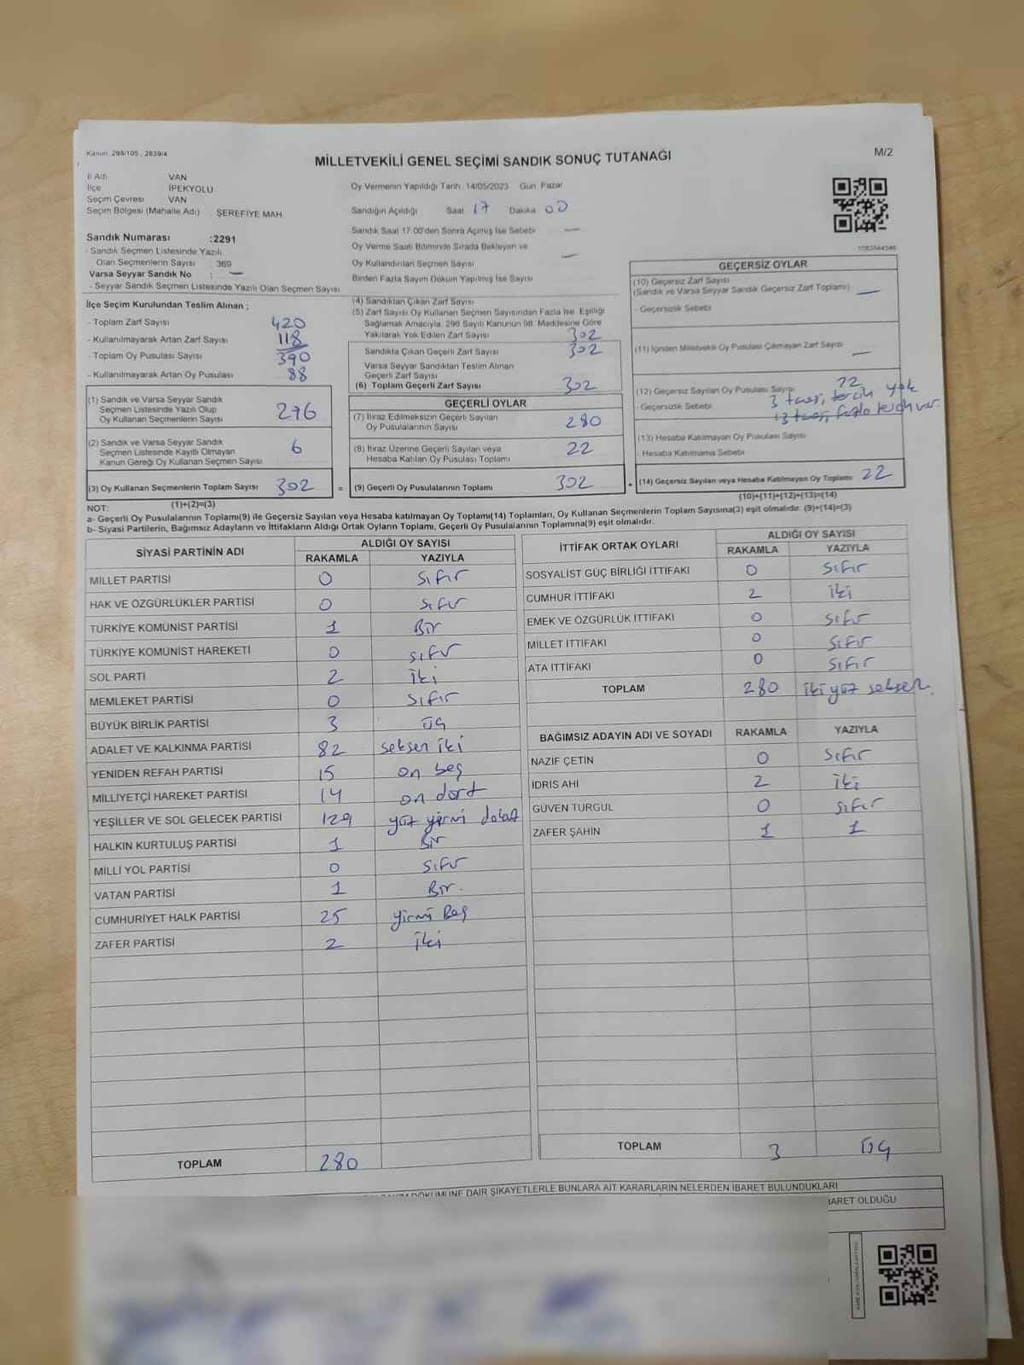 Kanun: 298/105, 2839/4
MİLLETVEKİLİ GENEL SEÇİMİ SANDIK SONUÇ TUTANAĞI
M/2
İl Adı VAN
İlçe İPEKYOLU
Seçim Çevresi VAN
Seçim Bölgesi (Mahalle Adı) : ŞEREFİYE MAH.
Sandık Numarası :2291
- Sandık Seçmen Listesinde Yazılı
Olan Seçmenlerin Sayısı : 369
Varsa Seyyar Sandık No : —
- Seyyar Sandık Seçmen Listesinde Yazılı Olan Seçmen Sayısı
İlçe Seçim Kurulundan Teslim Alınan ;
- Toplam Zarf Sayısı 420
- Kullanılmayarak Artan Zarf Sayısı 118
- Toplam Oy Pusulası Sayısı 390
- Kullanılmayarak Artan Oy Pusulası 88
(1) Sandık ve Varsa Seyyar Sandık
Seçmen Listesinde Yazılı Olup
Oy Kullanan Seçmenlerin Sayısı 276
(2) Sandık ve Varsa Seyyar Sandık
Seçmen Listesinde Kayıtlı Olmayan
Kanun Gereği Oy Kullanan Seçmen Sayısı 6
(3) Oy Kullanan Seçmenlerin Toplam Sayısı 302 =
(1)+(2)=(3)
Oy Vermenin Yapıldığı Tarih: 14/05/2023 Gün: Pazar
Sandığın Açıldığı Saat 17 Dakika 00
Sandık Saat 17:00'den Sonra Açılmış İse Sebebi —
Oy Verme Saati Bitiminde Sırada Bekleyen ve
Oy Kullandırılan Seçmen Sayısı —
Birden Fazla Sayım Döküm Yapılmış İse Sayısı
(4) Sandıktan Çıkan Zarf Sayısı
(5) Zarf Sayısı Oy Kullanan Seçmen Sayısından Fazla İse, Eşitliği
Sağlamak Amacıyla, 298 Sayılı Kanunun 98. Maddesine Göre
Yakılarak Yok Edilen Zarf Sayısı 302
Sandıkta Çıkan Geçerli Zarf Sayısı 302
Varsa Seyyar Sandıktan Teslim Alınan
Geçerli Zarf Sayısı
(6) Toplam Geçerli Zarf Sayısı 302
GEÇERLİ OYLAR
(7) İtiraz Edilmeksizin Geçerli Sayılan
Oy Pusulalarının Sayısı 280
(8) İtiraz Üzerine Geçerli Sayılan veya
Hesaba Katılan Oy Pusulası Toplamı 22
(9) Geçerli Oy Pusulalarının Toplamı 302 +
GEÇERSİZ OYLAR
(10) Geçersiz Zarf Sayısı
(Sandık ve Varsa Seyyar Sandık Geçersiz Zarf Toplamı) —
- Geçersizlik Sebebi:
(11) İçinden Milletvekili Oy Pusulası Çıkmayan Zarf Sayısı —
(12) Geçersiz Sayılan Oy Pusulası Sayısı 22
- Geçersizlik Sebebi 3 tanesi, tercih yok
fazla tercih var.
(13) Hesaba Katılmayan Oy Pusulası Sayısı
- Hesaba Katılmama Sebebi
(14) Geçersiz Sayılan veya Hesaba Katılmayan Oy Toplamı 22
(10)+(11)+(12)+(13)=(14)
NOT:
a- Geçerli Oy Pusulası Toplamı(9) ile Geçersiz Sayılan veya Hesaba katılmayan Oy Toplamı(14) Toplamları, Oy Kullanan Seçmenlerin Toplam Sayısına(3) eşit olmalıdır. (9)+(14)=(3)
b- Siyasi Partilerin, Bağımsız Adayların ve İttifakların Aldığı Ortak Oyların Toplamı, Geçerli Oy Pusulalarının Toplamına(9) eşit olmalıdır.
SİYASİ PARTİNİN ADI ALDIĞI OY SAYISI
RAKAMLA YAZIYLA
MİLLET PARTİSİ 0 Sıfır
HAK VE ÖZGÜRLÜKLER PARTİSİ 0 Sıfır
TÜRKİYE KOMÜNİST PARTİSİ 1 Bir
TÜRKİYE KOMÜNİST HAREKETİ 0 sıfır
SOL PARTİ 2 iki
MEMLEKET PARTİSİ 0 Sıfır
BÜYÜK BİRLİK PARTİSİ 3 üç
ADALET VE KALKINMA PARTİSİ 82 seksen iki
YENİDEN REFAH PARTİSİ 15 on beş
MİLLİYETÇİ HAREKET PARTİSİ 14 on dört
YEŞİLLER VE SOL GELECEK PARTİSİ 129 yüz yirmi dokuz
HALKIN KURTULUŞ PARTİSİ 1 Bir
MİLLİ YOL PARTİSİ 0 Sıfır
VATAN PARTİSİ 1 Bir.
CUMHURİYET HALK PARTİSİ 25 yirmi Beş
ZAFER PARTİSİ 2 iki
TOPLAM 280
İTTİFAK ORTAK OYLARI ALDIĞI OY SAYISI
RAKAMLA YAZIYLA
SOSYALİST GÜÇ BİRLİĞİ İTTİFAKI 0 Sıfır
CUMHUR İTTİFAKI 2 iki
EMEK VE ÖZGÜRLÜK İTTİFAKI 0 sıfır
MİLLET İTTİFAKI 0 sıfır
ATA İTTİFAKI 0 sıfır
TOPLAM 280 iki yüz seksen.
BAĞIMSIZ ADAYIN ADI VE SOYADI RAKAMLA YAZIYLA
NAZIF ÇETİN 0 Sıfır
İDRİS AHİ 2 iki
GÜVEN TURGUL 0 sıfır
ZAFER ŞAHİN 1 1
TOPLAM 3 üç
DÖKÜMÜNE DAİR ŞİKAYETLERLE BUNLARA AİT KARARLARIN NELERDEN İBARET BULUNDUKLARI
İBARET OLDUĞU